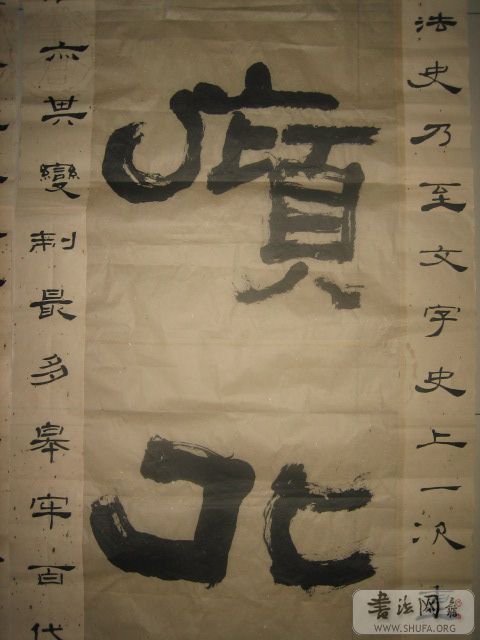 法史乃至文字史上一次
北
亦其變制最多皋牢百代
書法网
WWW.SHUFA.ORG